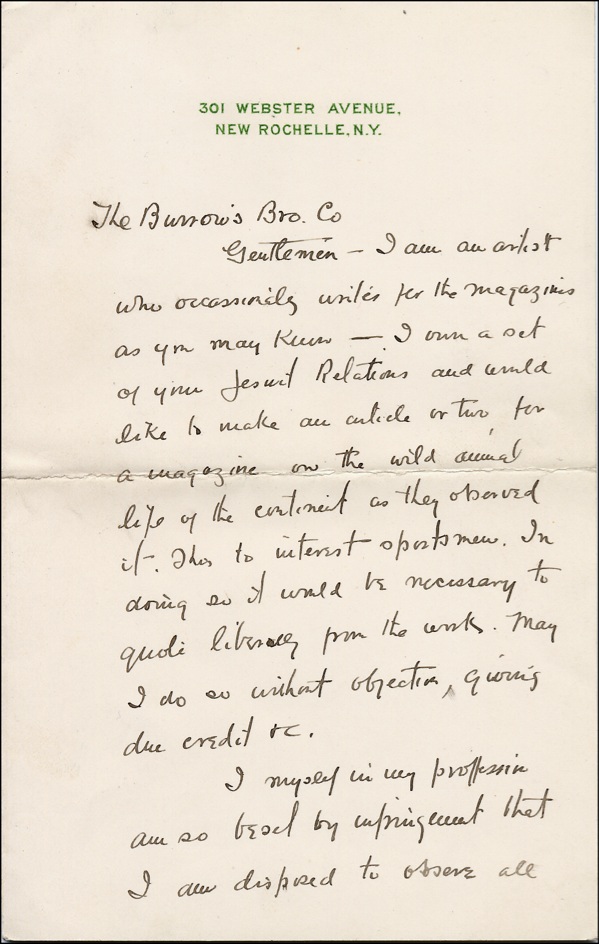 301 WEBSTER AVENUE,
NEW ROCHELLE, N.Y.
The Burrow's Bro. Co
Gentlemen — I am an artist
who occassionaly writes for the magazines
as you may know — I own a set
of your Jesuit Relations and would
like to make an article or two, for
a magazine on the wild animal
life of the continent as they observed
it. This to interest sportsmen. In
doing so it would be necessary to
quote liberaly from the work. May
I do so without objection, giving
due credit &c.
I myself in my proffession
am so beset by infringement that
I am disposed to observe all